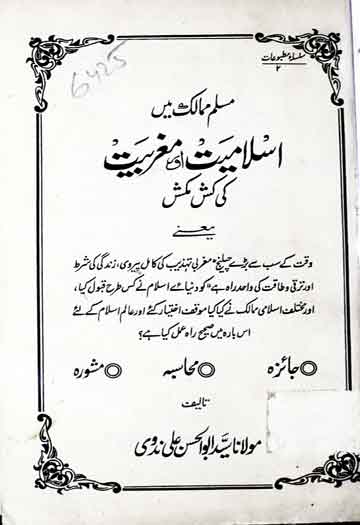 سلسلۂ مطبوعات
۲
6425
مسلم ممالک میں
اسلامیت اور مغربیت
کی کش مکش
یعنے
وقت کے سب سے بڑے چیلنج "مغربی تہذیب کی کامل پیروی، زندگی کی شرط
اور ترقی و طاقت کی واحد راہ ہے" کو دنیائے اسلام نے کس طرح قبول کیا،
اور مختلف اسلامی ممالک نے کیا کیا موقف اختیار کئے اور عالم اسلام کے لئے
اس بارہ میں صحیح راہ عمل کیا ہے؟
جائزہ محاسبہ مشورہ
تالیف
مولانا سید ابوالحسن علی ندوی